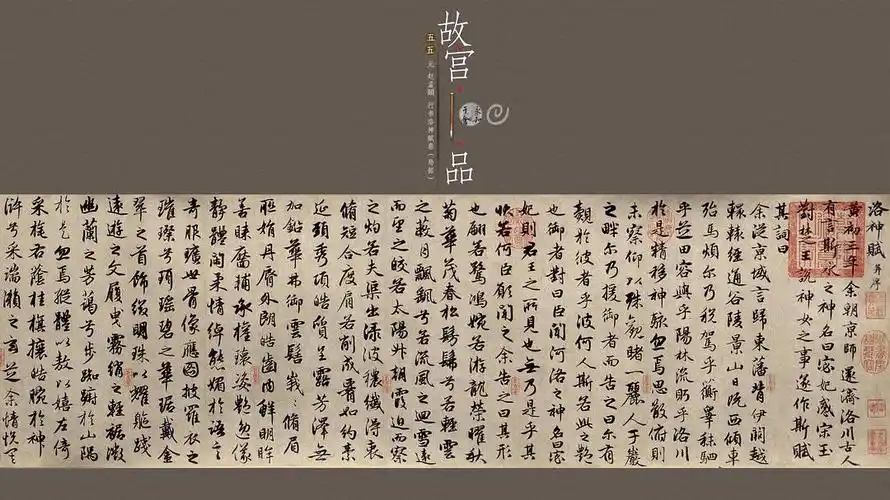 故宫
品
五五
元 赵孟頫 行书洛神赋卷（局部）
洛神賦 并序
黄初三年余朝京師還濟洛川古人
有言斯水之神名曰宓妃感宋玉
對楚王說神女之事遂作斯賦
其詞曰
余從京域言歸東藩背伊闕越
轘轅經通谷陵景山日既西傾車
殆馬煩尔乃稅駕乎蘅皋秣駟
乎芝田容與乎陽林流眄乎洛川
於是精移神駭忽焉思散俯則
未察仰以殊觀睹一麗人于巖
之畔尔乃援御者而告之曰尔有
覿於彼者乎彼何人斯若此之艷
也御者對曰臣聞河洛之神名曰宓
妃則君王之所見也無乃是乎其
狀若何臣願聞之余告之曰其形
也翩若驚鴻婉若游龍榮曜秋
菊華茂春松髣髴兮若輕雲
之蔽月飄飄兮若流風之迴雪遠
而望之皎若太陽升朝霞迫而察
之灼若夫渠出淥波穠纖得衷
脩短合度肩若削成腰如約素
延頸秀項皓質呈露芳澤無
加鉛華弗御雲髻峩峩脩眉
聯娟丹脣外朗皓齒内鮮明眸
善睞靨輔承權瓌姿艷逸儀
靜體閑柔情綽態媚於語言
奇服曠世骨像應圖披羅衣之
璀璨兮珥瑤碧之華琚戴金
翠之首飾綴明珠以耀軀踐
遠遊之文履曳霧綃之輕裾微
幽蘭之芳藹兮步踟躕於山隅
於是忽焉縱體以遨以嬉左倚
采旄右蔭桂旗攘皓腕於神
滸兮采湍瀨之玄芝余情悅其